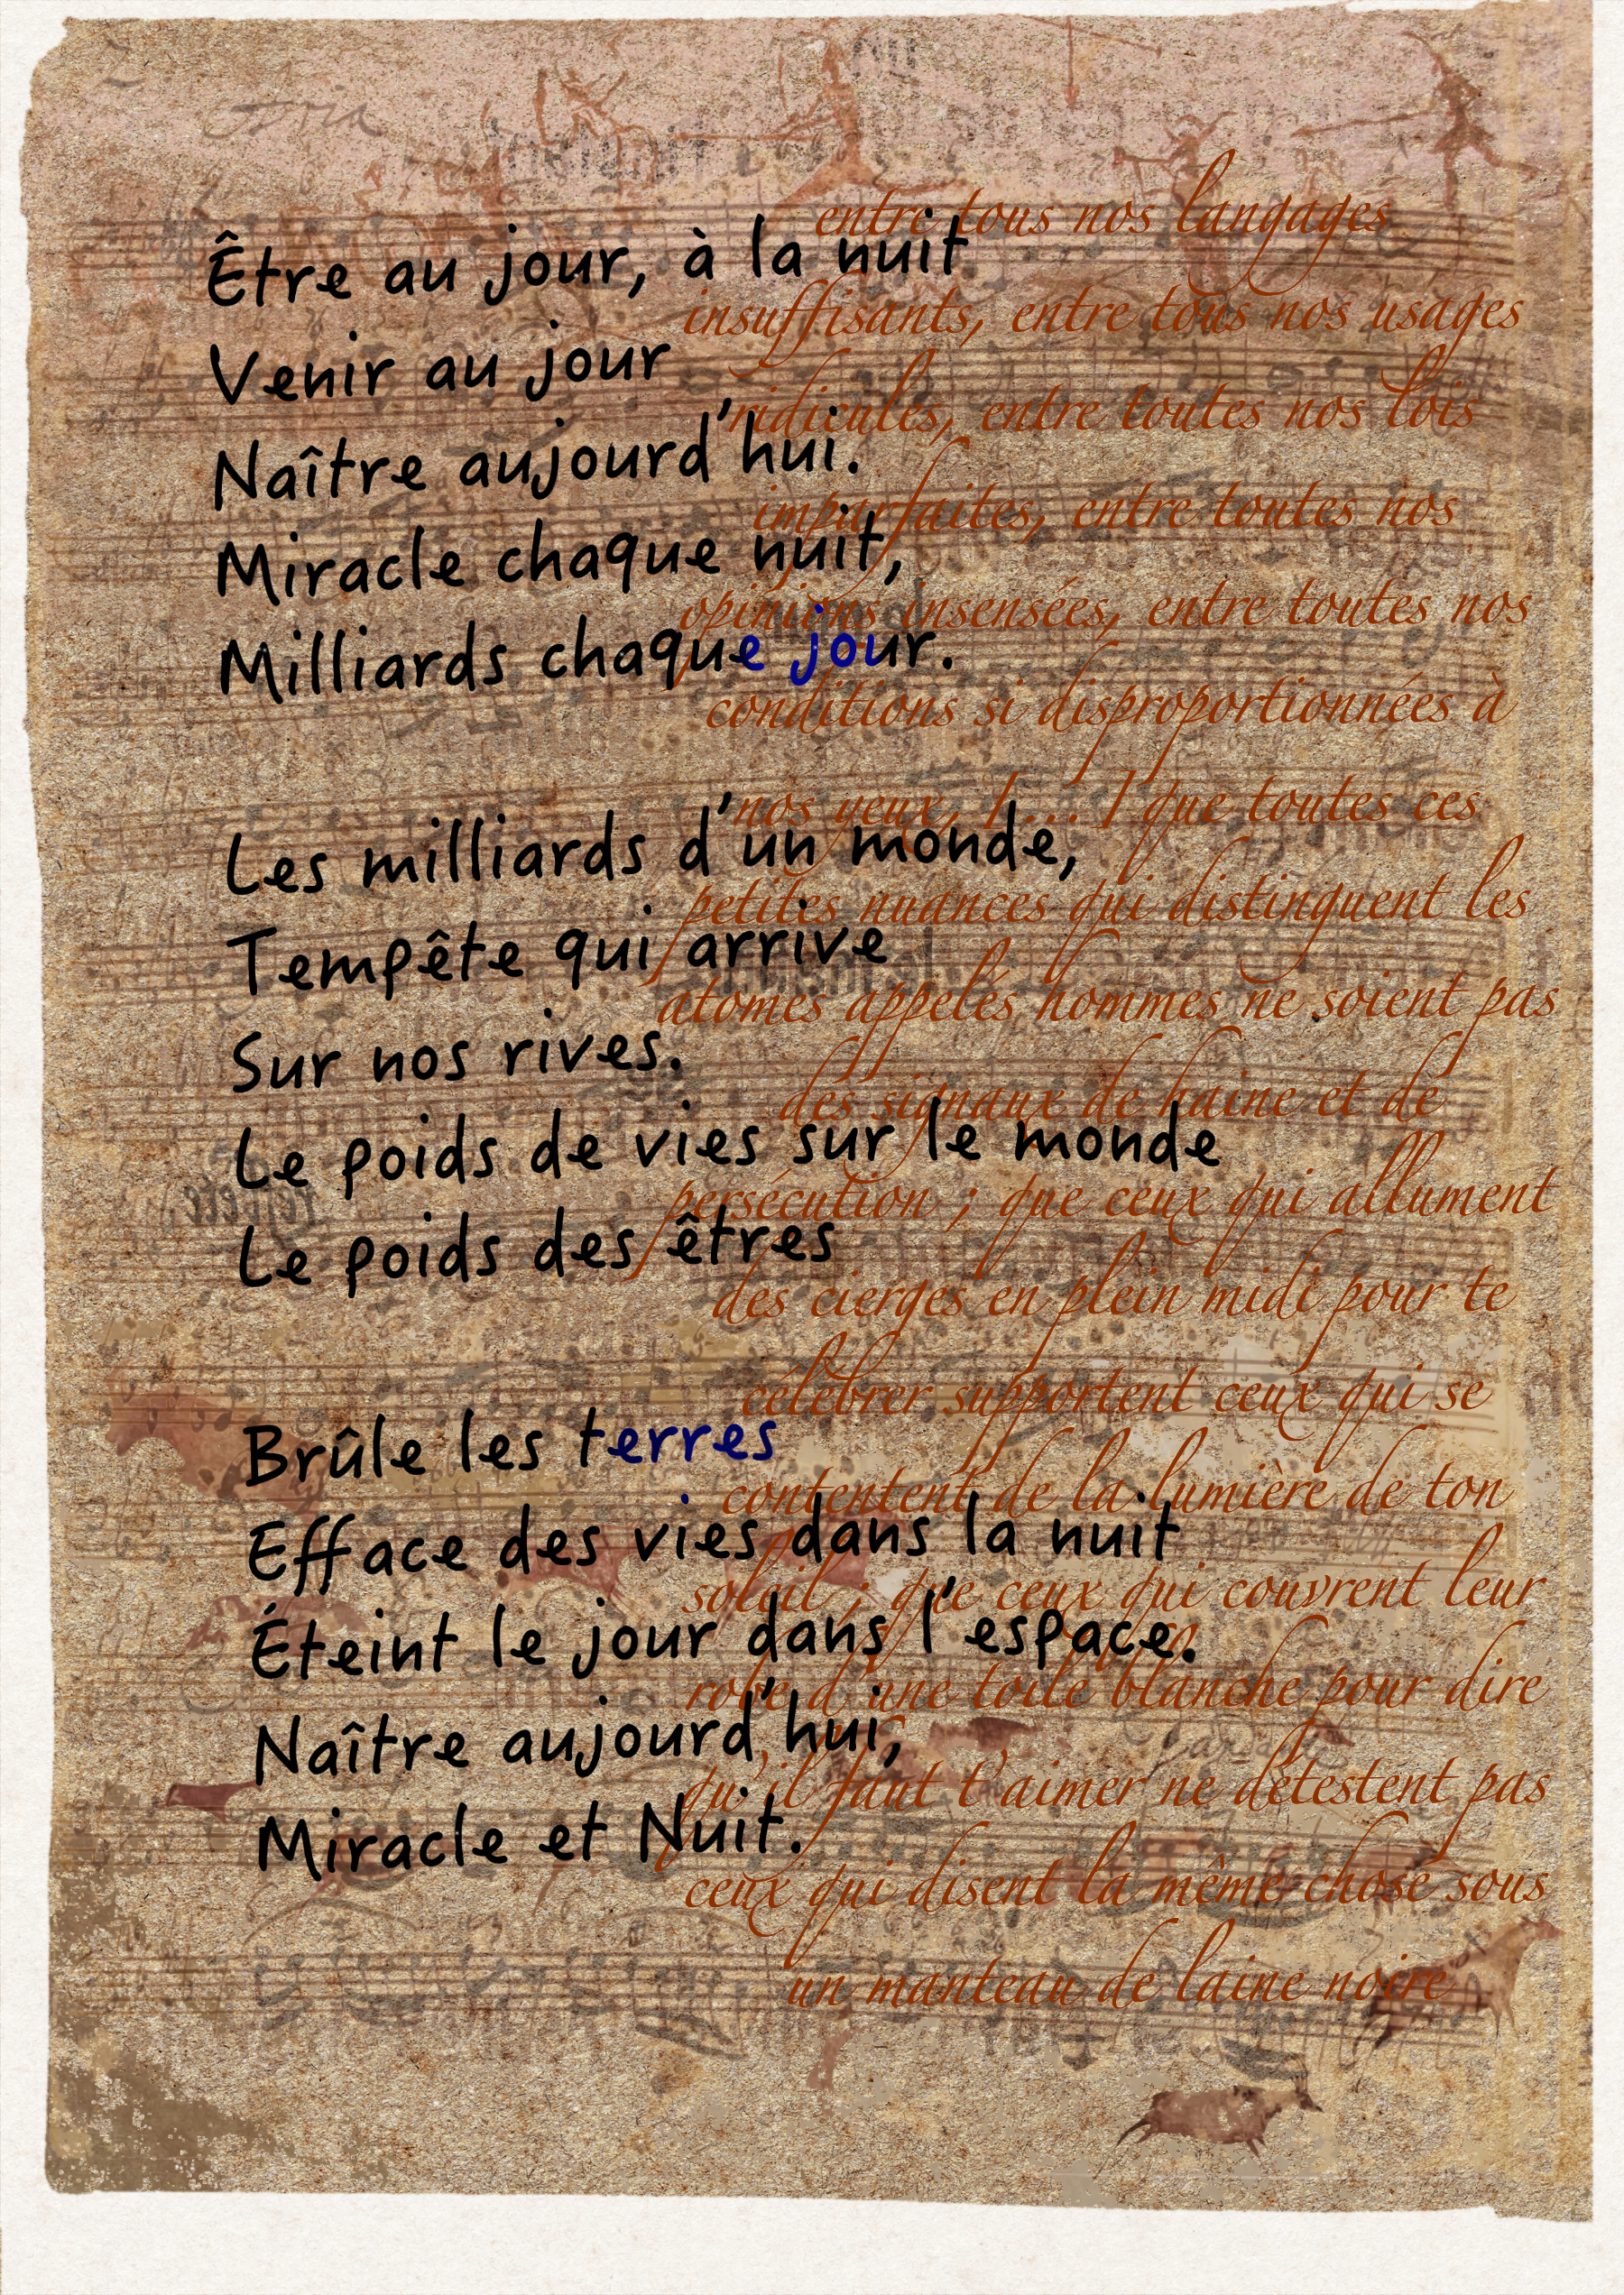 Être au jour, à la nuit
Venir au jour
Naître aujourd'hui.
Miracle chaque nuit,
Milliards chaque jour.
Les milliards d'un monde,
Tempête qui arrive
Sur nos rives.
Le poids de vies sur le monde
Le poids des êtres
Brûle les terres
Efface des vies dans la nuit
Éteint le jour dans l'espace.
Naître aujourd'hui,
Miracle et Nuit.
entre tous nos langages
insuffisants, entre tous nos usages
ridicules, entre toutes nos lois
imparfaites, entre toutes nos
opinions insensées, entre toutes nos
conditions si disproportionnées à
nos yeux, [...] que toutes ces
petites nuances qui distinguent les
atomes appelés hommes ne soient pas
des signaux de haine et de
persécution ; que ceux qui allument
des cierges en plein midi pour te
célébrer supportent ceux qui se
contentent de la lumière de ton
soleil ; que ceux qui couvrent leur
robe d'une toile blanche pour dire
qu'il faut t'aimer ne détestent pas
ceux qui disent la même chose sous
un manteau de laine noire